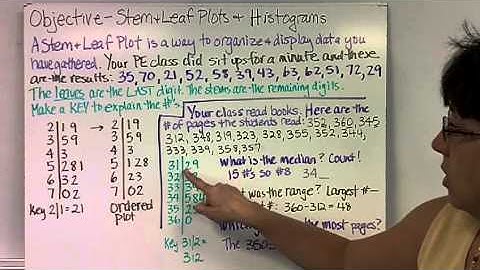 Objective - Stem + Leaf Plots + Histograms
A Stem + Leaf Plot is a way to organize + display data you
have gathered. Your PE class did sit ups for a minute and these
are the results: 35, 70, 21, 52, 58, 39, 43, 63, 62, 51, 72, 29
The leaves are the LAST digit. The stems are the remaining digits.
Make a KEY to explain the #'s.
2|19 → 2|19
3|59 3|59
4|3 4|3
5|281 5|128
6|32 6|23
7|02 7|02
Key 2|1=21
Ordered
Plot
Your class read books. Here are the
# of pages the students read: 352, 360, 345
312, 348, 319, 323, 328, 355, 352, 344,
333, 339, 358, 357
31|29
32
33
34|584
35
36|0
Key 31|2=
312
What is the median? Count!
15 #'s so #8 34_
was the range? Largest #-
#: 360-312 = 48
the most pages?
The 360